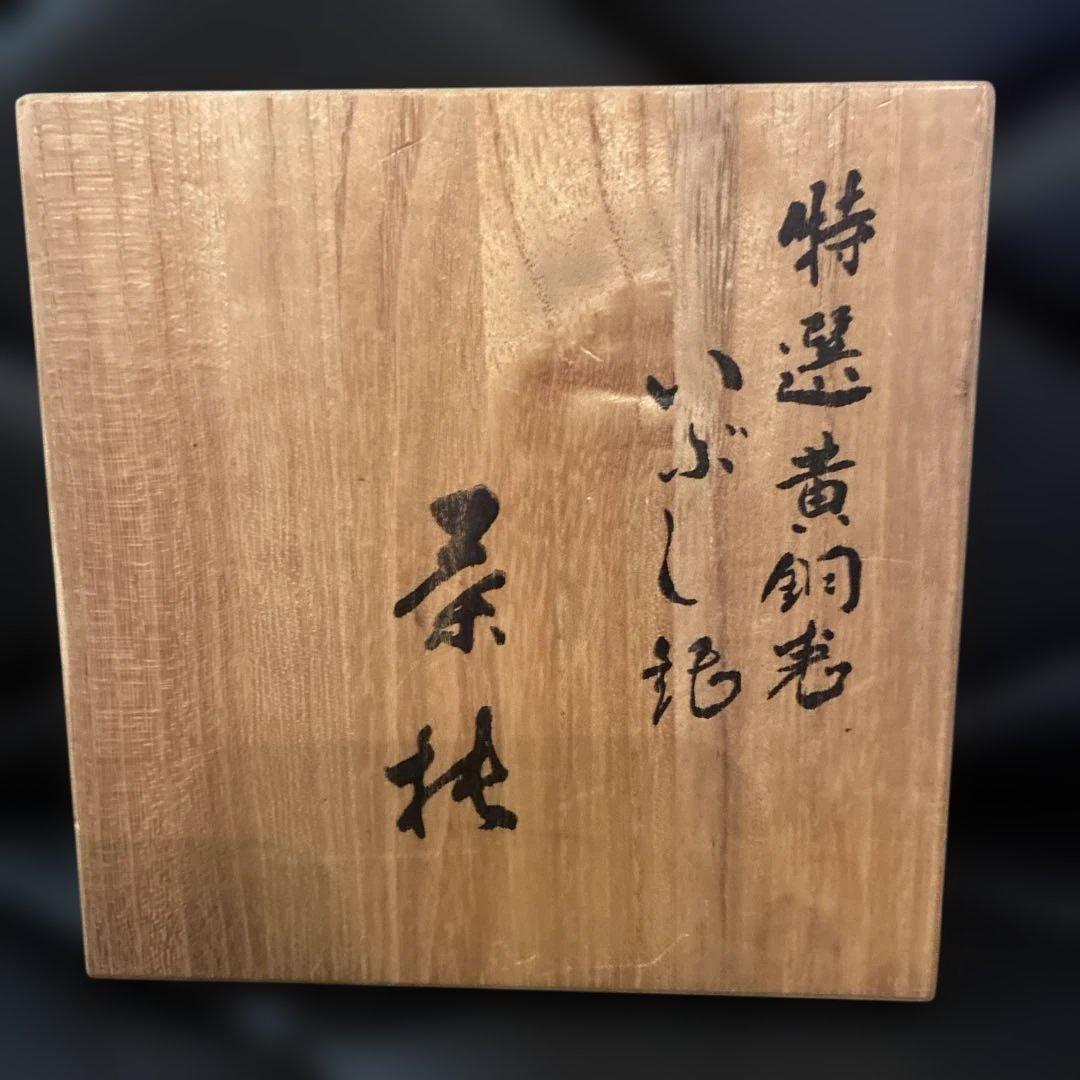 特選黄銅製
いぶし銀
茶托